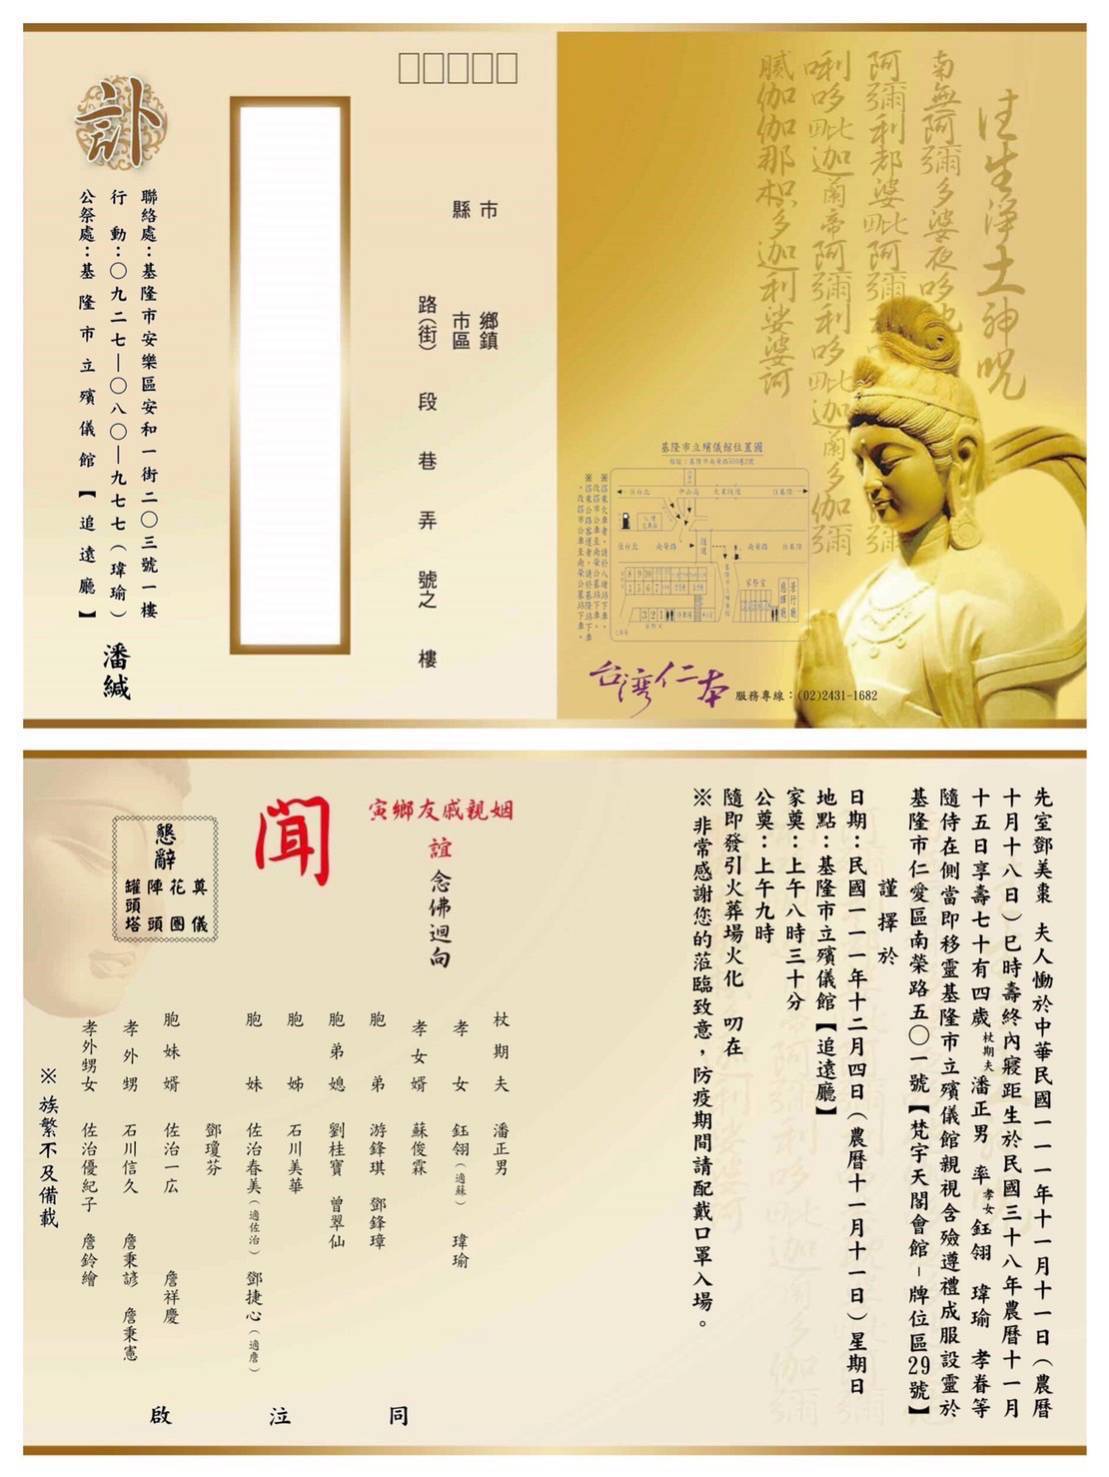 訃
聯絡處：基隆市安樂區安和一街二〇三號一樓
行動：〇九二七－〇八〇－九七七（瑋瑜）
公祭處：基隆市立殯儀館【追遠廳】
潘緘
市
縣
鄉鎮
市區
路(街)
段
巷
弄
號之
樓
往生淨土神咒
南無阿彌多婆夜哆
阿彌利都婆毗阿彌
唎哆毗迦蘭帝阿彌利哆毗迦蘭多伽彌
膩伽伽那枳多迦利娑婆訶
基隆市立殯儀館位置圖
台灣仁本
服務專線：(02)2431-1682
先室鄧美棗 夫人慟於中華民國一一一年十一月十一日（農曆
十月十八日）巳時壽終內寢距生於民國三十八年農曆十一月
十五日享壽七十有四歲杖期夫潘正男 率孝女鈺翎 瑋瑜 孝眷等
隨侍在側當即移靈基隆市立殯儀館親視含殮遵禮成服設靈於
基隆市仁愛區南榮路五〇一號【梵宇天閣會館－牌位區29號】
謹擇於
日期：民國一一一年十二月四日（農曆十一月十一日）星期日
地點：基隆市立殯儀館【追遠廳】
家奠：上午八時三十分
公奠：上午九時
隨即發引火葬場火化 叨在
※非常感謝您的蒞臨致意，防疫期間請配戴口罩入場。
寅鄉友戚親姻
誼念佛迴向
聞
懇辭
奠儀
花圈
陣頭
罐頭塔
杖期夫 潘正男
孝女 鈺翎（適蘇） 瑋瑜
孝女婿 蘇俊霖
胞弟 游鋒琪 鄧鋒璋
胞弟媳 劉桂寶 曾翠仙
胞姊 石川美華
胞妹 佐治春美（適佐治） 鄧捷心（適詹）
鄧瓊芬
胞妹婿 佐治一広 詹祥慶
孝外甥 石川信久 詹秉諺 詹秉憲
孝外甥女 佐治優紀子 詹鈴繪
※族繁不及備載
同泣啟